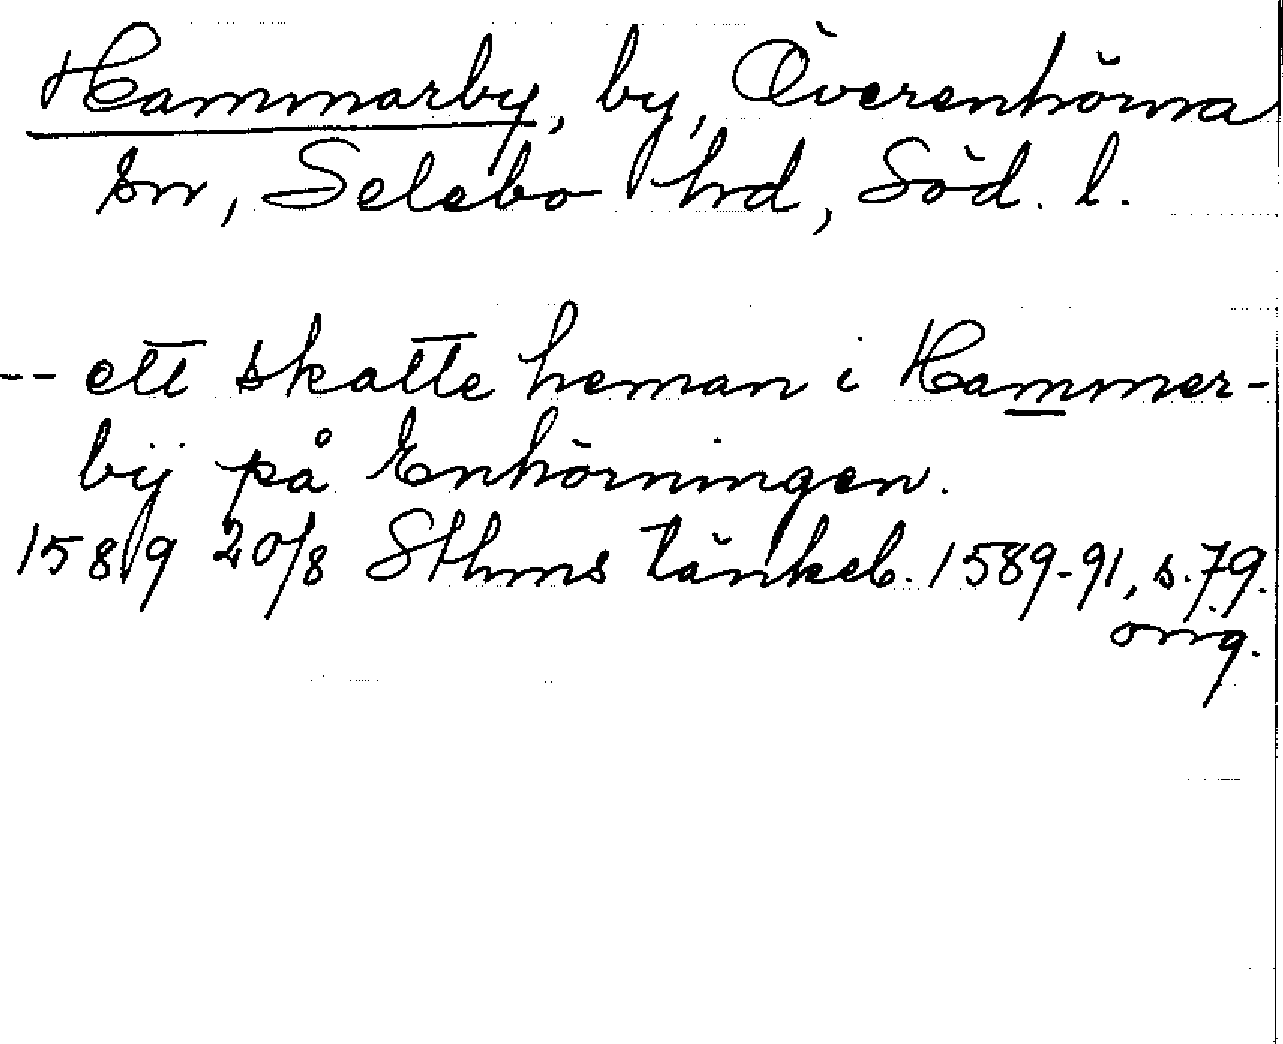 Hammarby, by, Överenhörna
sn, Selebo hrd, Söd. l.
-- ett skatte heman i Hammer-
bÿ på Enhörningen.
1589 20/8 Sthms tänkeb. 1589-91, s. 79.
orig.